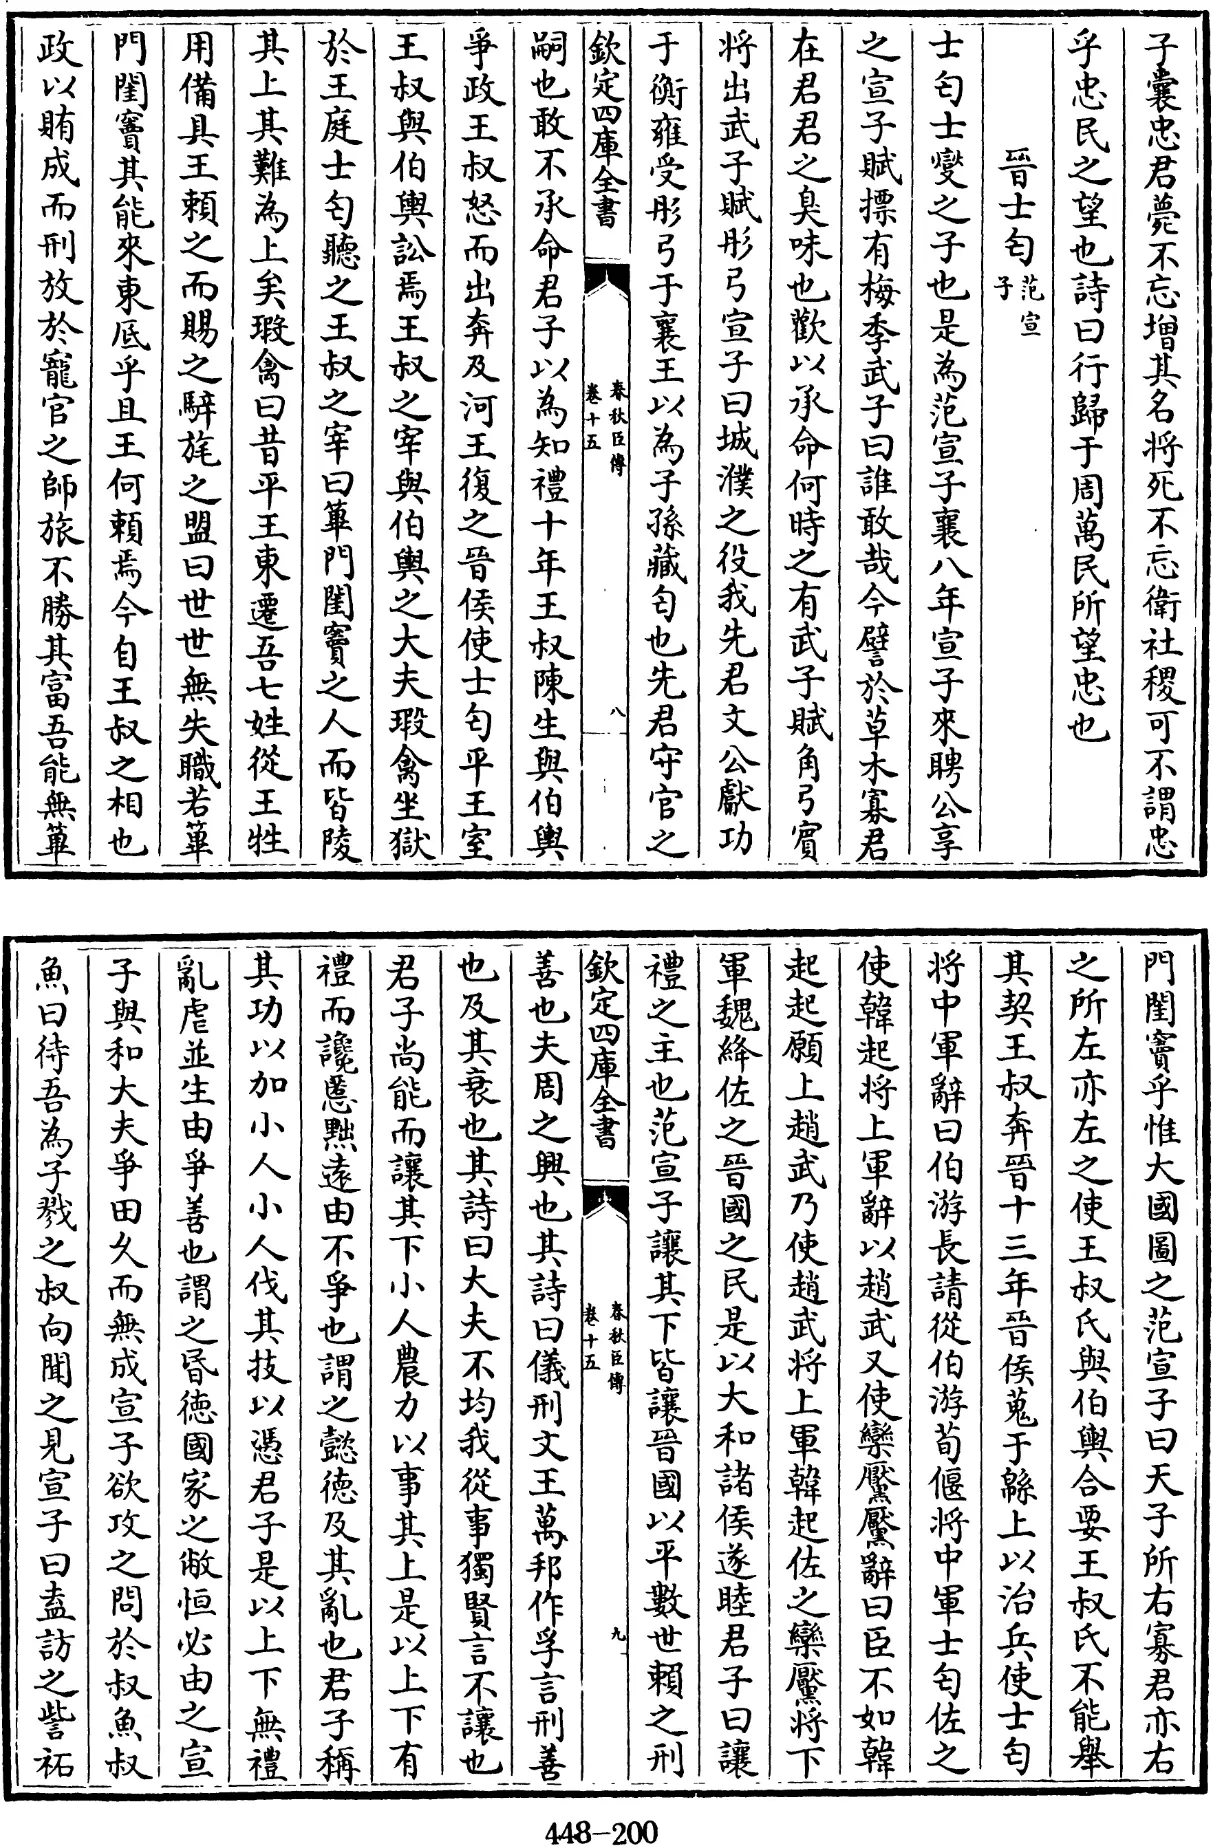 子囊忠君薨不忘增其名將死不忘衛社稷可不謂忠
乎忠民之望也詩曰行歸于周萬民所望忠也
晉士匄范宣子
士匄士燮之子也是為范宣子襄八年宣子來聘公享
之宣子賦摽有梅季武子曰誰敢哉今譬於草木寡君
在君君之臭味也歡以承命何時之有武子賦角弓賓
將出武子賦彤弓宣子曰城濮之役我先君文公獻功
于衡雍受彤弓于襄王以為子孫藏匄也先君守官之
欽定四庫全書
春秋臣傳
卷十五
八
嗣也敢不承命君子以為知禮十年王叔陳生與伯輿
爭政王叔怒而出奔及河王復之晉侯使士匄平王室
王叔與伯輿訟焉王叔之宰與伯輿之大夫瑕禽坐獄
於王庭士匄聽之王叔之宰曰篳門閨竇之人而皆陵
其上其難為上矣瑕禽曰昔平王東遷吾七姓從王牲
用備具王賴之而賜之騂旄之盟曰世世無失職若篳
門閨竇其能來東厎乎且王何賴焉今自王叔之相也
政以賄成而刑放於寵官之師旅不勝其富吾能無篳
門閨竇乎惟大國圖之范宣子曰天子所右寡君亦右
之所左亦左之使王叔氏與伯輿合要王叔氏不能舉
其契王叔奔晉十三年晉侯蒐于緜上以治兵使士匄
將中軍辭曰伯游長請從伯游荀偃將中軍士匄佐之
使韓起將上軍辭以趙武又使欒黶黶辭曰臣不如韓
起起願上趙武乃使趙武將上軍韓起佐之欒黶將下
軍魏絳佐之晉國之民是以大和諸侯遂睦君子曰讓
禮之主也范宣子讓其下皆讓晉國以平數世賴之刑
欽定四庫全書
春秋臣傳
卷十五
九
善也夫周之興也其詩曰儀刑文王萬邦作孚言刑善
也及其衰也其詩曰大夫不均我從事獨賢言不讓也
君子尚能而讓其下小人農力以事其上是以上下有
禮而讒慝黜遠由不爭也謂之懿德及其亂也君子稱
其功以加小人小人伐其技以憑君子是以上下無禮
亂虐並生由爭善也謂之昏德國家之敝恒必由之宣
子與和大夫爭田久而無成宣子欲攻之問於叔魚叔
魚曰待吾為子戮之叔向聞之見宣子曰盍訪之訾祏
448-200